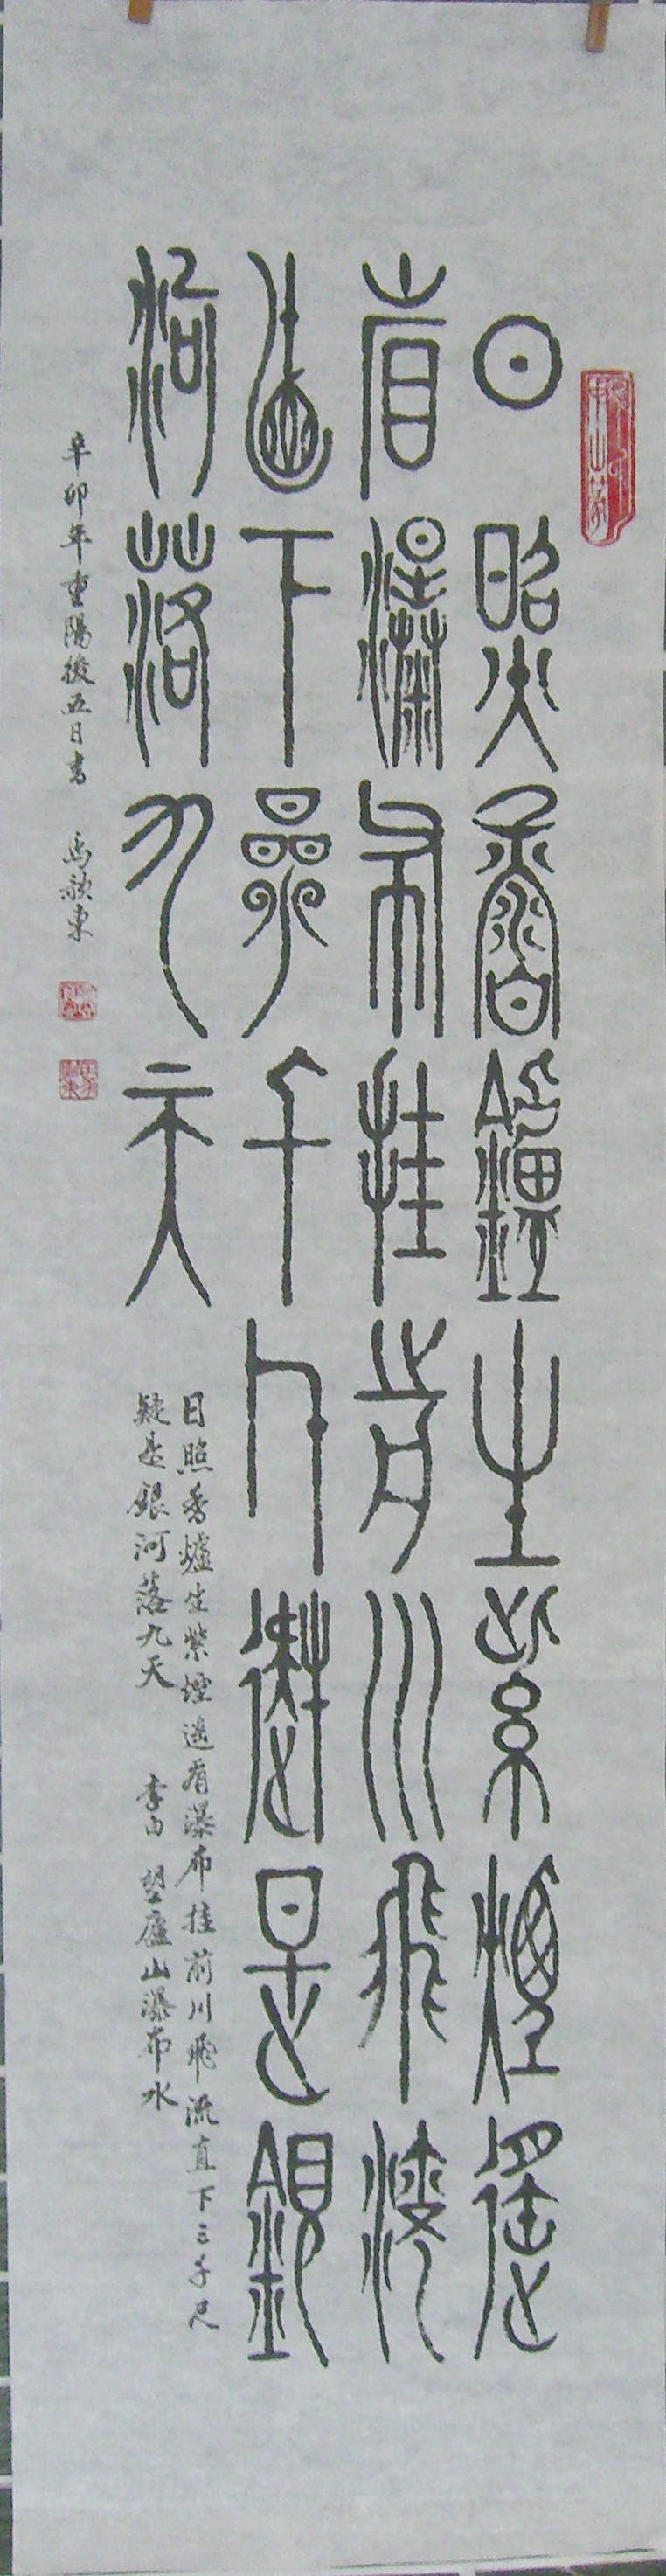 日照香鑪生紫煙遙
看瀑布挂前川飛流
直下叁千尺疑是銀
河落九天
日照香爐生紫煙遥看瀑布挂前川飛流直下三千尺
疑是銀河落九天 李白 望廬山瀑布水
辛卯年重陽後五日書 馬敬東